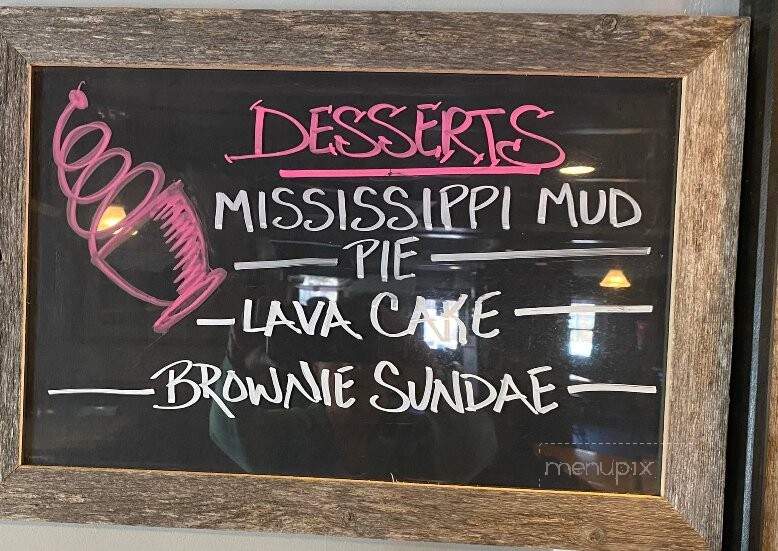 DESSERTS
MISSISSIPPI MUD
PIE
LAVA CAKE
BROWNIE SUNDAE
menupix